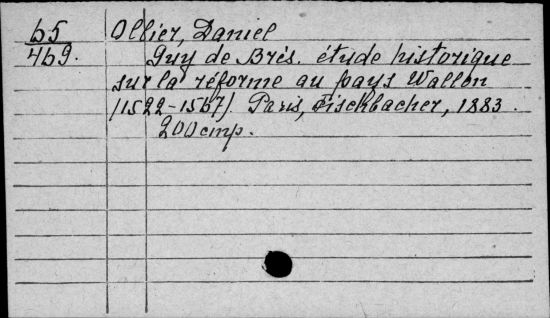 65 Ollier, Daniel
469. Guy de Brès. étude historique
sur la réforme au pays Wallon
(1522-1567) Paris, Fischbacher, 1883.
200 стр.